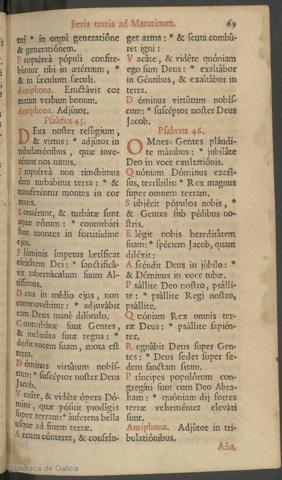 Feria tertia ad Matutinum. 69
tui * in omni generatióne
& generatiónem.
Proptéreà pópuli confite-
búntur tibi in ætérnum, *
& in sæculum sæculi.
Antiphona. Eructávit cor
meum verbum bonum.
Antiphona. Adjútor.
Psalmus 45.
Deus noster refúgium,
& virtus: * adjútor in
tribulatiónibus, quæ inve-
nérunt nos nimis.
Proptéreà non timébimus
dum turbábitur terra: * &
transferéntur montes in cor
maris.
Sonuérunt, & turbátæ sunt
aquæ eórum: * conturbáti
sunt montes in fortitúdine
ejus.
Flúminis ímpetus lætíficat
civitátem Dei: * sanctificá-
vit tabernáculum suum Al-
tíssimus.
Deus in médio ejus, non
commovébitur: * adjuvábit
eam Deus manè dilúculo.
Conturbátæ sunt Gentes,
& inclináta sunt regna: *
dedit vocem suam, mota est
terra.
Dóminus virtútum nobís-
cum: * suscéptor noster Deus
Jacob.
Veníte, & vidéte ópera Dó-
mini, quæ pósuit prodígia
super terram: * áuferens bella
usque ad finem terræ.
Arcum cónteret, & confrín-
get arma: * & scuta combú-
ret igni:
Vacáte, & vidéte quóniam
ego sum Deus: * exaltábor
in Géntibus, & exaltábor in
terra.
Dóminus virtútum nobís-
cum: * suscéptor noster Deus
Jacob.
Psalmus 46.
Omnes Gentes pláudi-
te mánibus: * jubiláte
Deo in voce exultatiónis.
Quóniam Dóminus excél-
sus, terríbilis: * Rex magnus
super omnem terram.
Subjécit pópulos nobis, *
& Gentes sub pédibus no-
stris.
Elégit nobis hereditátem
suam: * spéciem Jacob, quam
diléxit:
Ascéndit Deus in júbilo: *
& Dóminus in voce tubæ.
Psállite Deo nostro, psálli-
te: * psállite Regi nostro,
psállite.
Quóniam Rex omnis ter-
ræ Deus: * psállite sapién-
ter.
Regnábit Deus super Gen-
tes: * Deus sedet super se-
dem sanctam suam.
Príncipes populórum con-
gregáti sunt cum Deo Abra-
ham: * quóniam dij fortes
terræ veheménter eleváti
sunt.
Antiphona. Adjútor in tri-
bulatiónibus.
Aña.
Biblioteca de Galicia